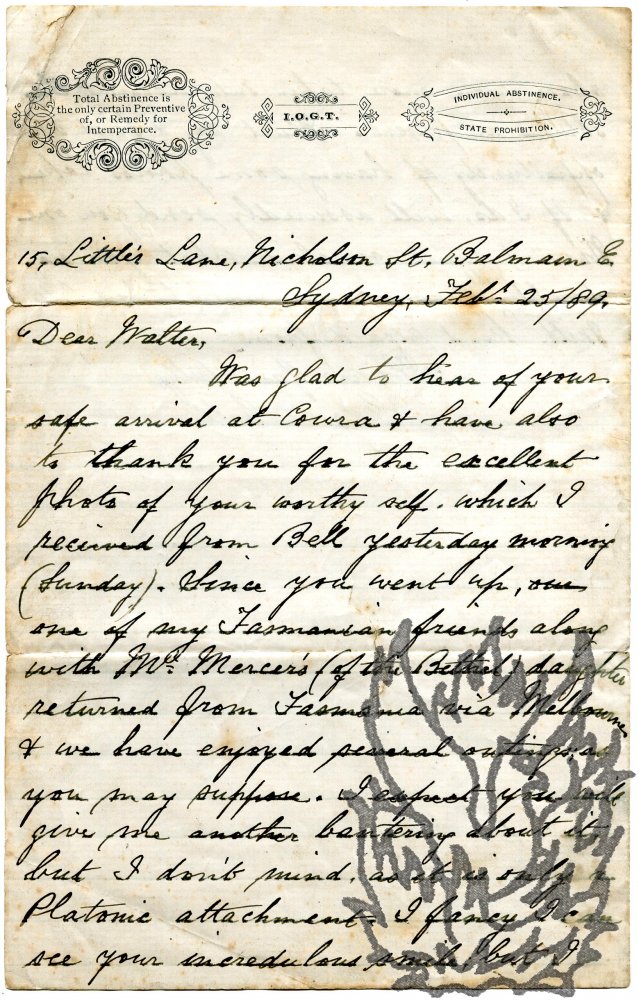 Total Abstinence is
the only certain Preventive
of, or Remedy for
Intemperance.
I.O.G.T.
INDIVIDUAL ABSTINENCE.
STATE PROHIBITION.
15, Little's Lane, Nicholson St. Balmain E.
Sydney, Feby. 25/89.
Dear Walter,
Was glad to hear of your
safe arrival at Cowra & have also
to thank you for the excellent
photo of your worthy self. which I
received from Bell yesterday morning
(Sunday). Since you went up, our
one of my Tasmanian friends along
with Mr. Mercer's (of the Bethel) daughter
returned from Tasmania via Melbourne
& we have enjoyed several outings, as
you may suppose. I expect you will
give me another bantering about it,
but I don't mind, as it is only a
Platonic attachment. I fancy I can
see your incredulous smile, but I